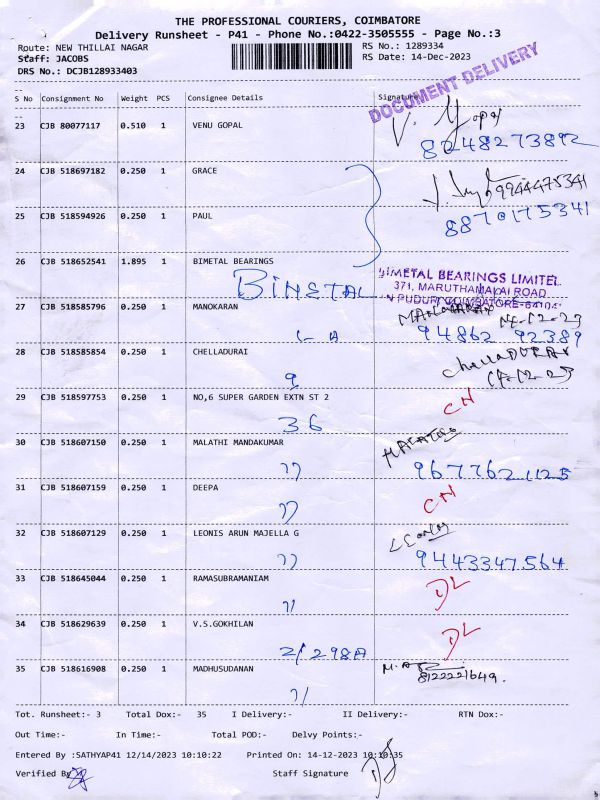 THE PROFESSIONAL COURIERS, COIMBATORE
Delivery Runsheet - P41 - Phone No.:0422-3505555 - Page No.:3
Route: NEW THILLAI NAGAR RS No.: 1289334
Staff: JACOBS RS Date: 14-Dec-2023
DRS No.: DCJB128933403
DOCUMENT DELIVERY
S No Consignment No Weight PCS Consignee Details Signature
23 CJB 80077117 0.510 1 VENU GOPAL V. Gopal
8248273892
24 CJB 518697182 0.250 1 GRACE 9944475341
25 CJB 518594926 0.250 1 PAUL 8870175341
26 CJB 518652541 1.895 1 BIMETAL BEARINGS
BIMETAL BEARINGS LIMITED
BIMETAL 371, MARUTHAMALAI ROAD
27 CJB 518585796 0.250 1 MANOKARAN 14-12-23
94862 92389
28 CJB 518585854 0.250 1 CHELLADURAI chellADURAI
9 14-12-23
29 CJB 518597753 0.250 1 NO,6 SUPER GARDEN EXTN ST 2 CN
36
30 CJB 518607150 0.250 1 MALATHI MANDAKUMAR
9677621125
31 CJB 518607159 0.250 1 DEEPA CN
32 CJB 518607129 0.250 1 LEONIS ARUN MAJELLA G
9443347564
33 CJB 518645044 0.250 1 RAMASUBRAMANIAM DL
34 CJB 518629639 0.250 1 V.S.GOKHILAN DL
2/298A
35 CJB 518616908 0.250 1 MADHUSUDANAN
8122221649.
Tot. Runsheet:- 3 Total Dox:- 35 I Delivery:- II Delivery:- RTN Dox:-
Out Time:- In Time:- Total POD:- Delvy Points:-
Entered By :SATHYAP41 12/14/2023 10:10:22 Printed On: 14-12-2023 10:10:35
Verified By Staff Signature